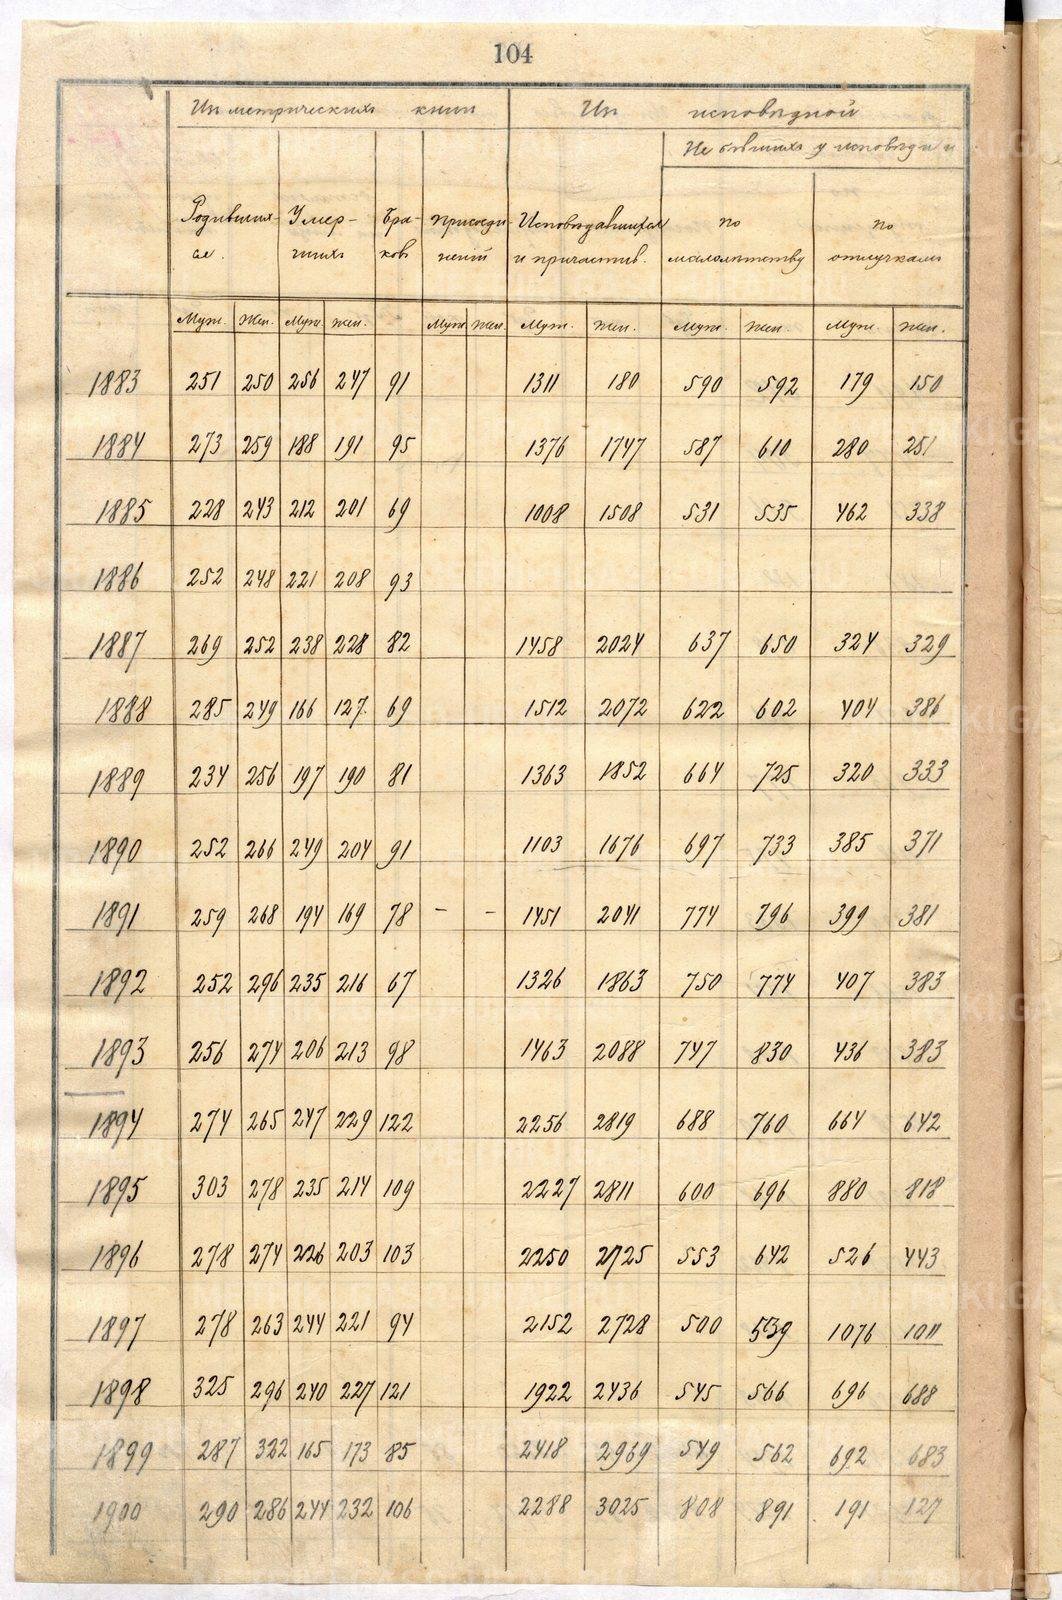 104
Из метрических книг Из исповѣдной
Не бывших у исповѣди и
Родивших- Умер- Бра- Присоеди- Исповѣдавшихся по по
ся. ших ков нений и причастив. малолѣтству отлучкам
Муж. Жен. Муж. Жен. Муж. Жен. Муж. Жен. Муж. Жен. Муж. Жен.
1883 251 250 256 247 91 1311 180 590 592 179 150
1884 273 259 188 191 95 1376 1747 587 610 280 251
1885 228 243 212 201 69 1008 1508 531 535 462 338
1886 252 248 221 208 93
1887 269 252 238 228 82 1458 2024 637 650 324 329
1888 285 249 166 127. 69 1512 2072 622 602 404 386
1889 234 256 197 190 81 1363 1852 664 725 320 333
1890 252 266 249 204 91 1103 1676 697 733 385 371
1891 259 268 194 169 78 - - 1451 2041 774 796 399 381
1892 252 296 235 216 67 1326 1863 750 774 407 383
1893 256 274 206 213 98 1463 2088 747 830 436 383
1894 274 265 247 229 122 2256 2819 688 760 664 642
1895 303 278 235 214 109 2227 2811 600 696 880 818
1896 278 274 226 203 103 2250 2725 553 642 526 443
1897 278 263 244 221 94 2152 2728 500 539 1076 1011
1898 325 296 240 227 121 1922 2436 545 566 696 688
1899 287 322 165 173 85 2418 2969 549 562 692 683
1900 290 286 244 232 106 2288 3025 808 891 191 127